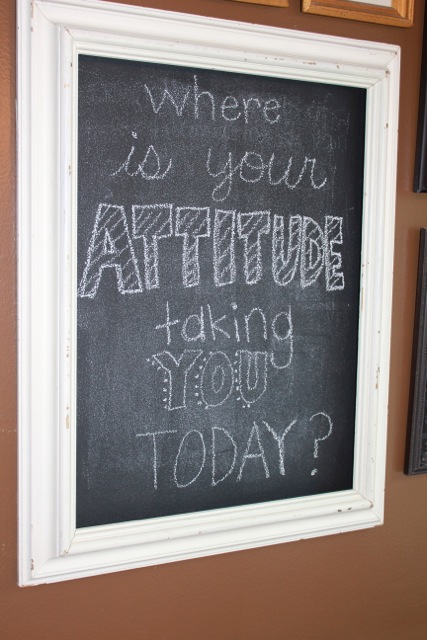 where
is your
ATTITUDE
taking
YOU
TODAY?